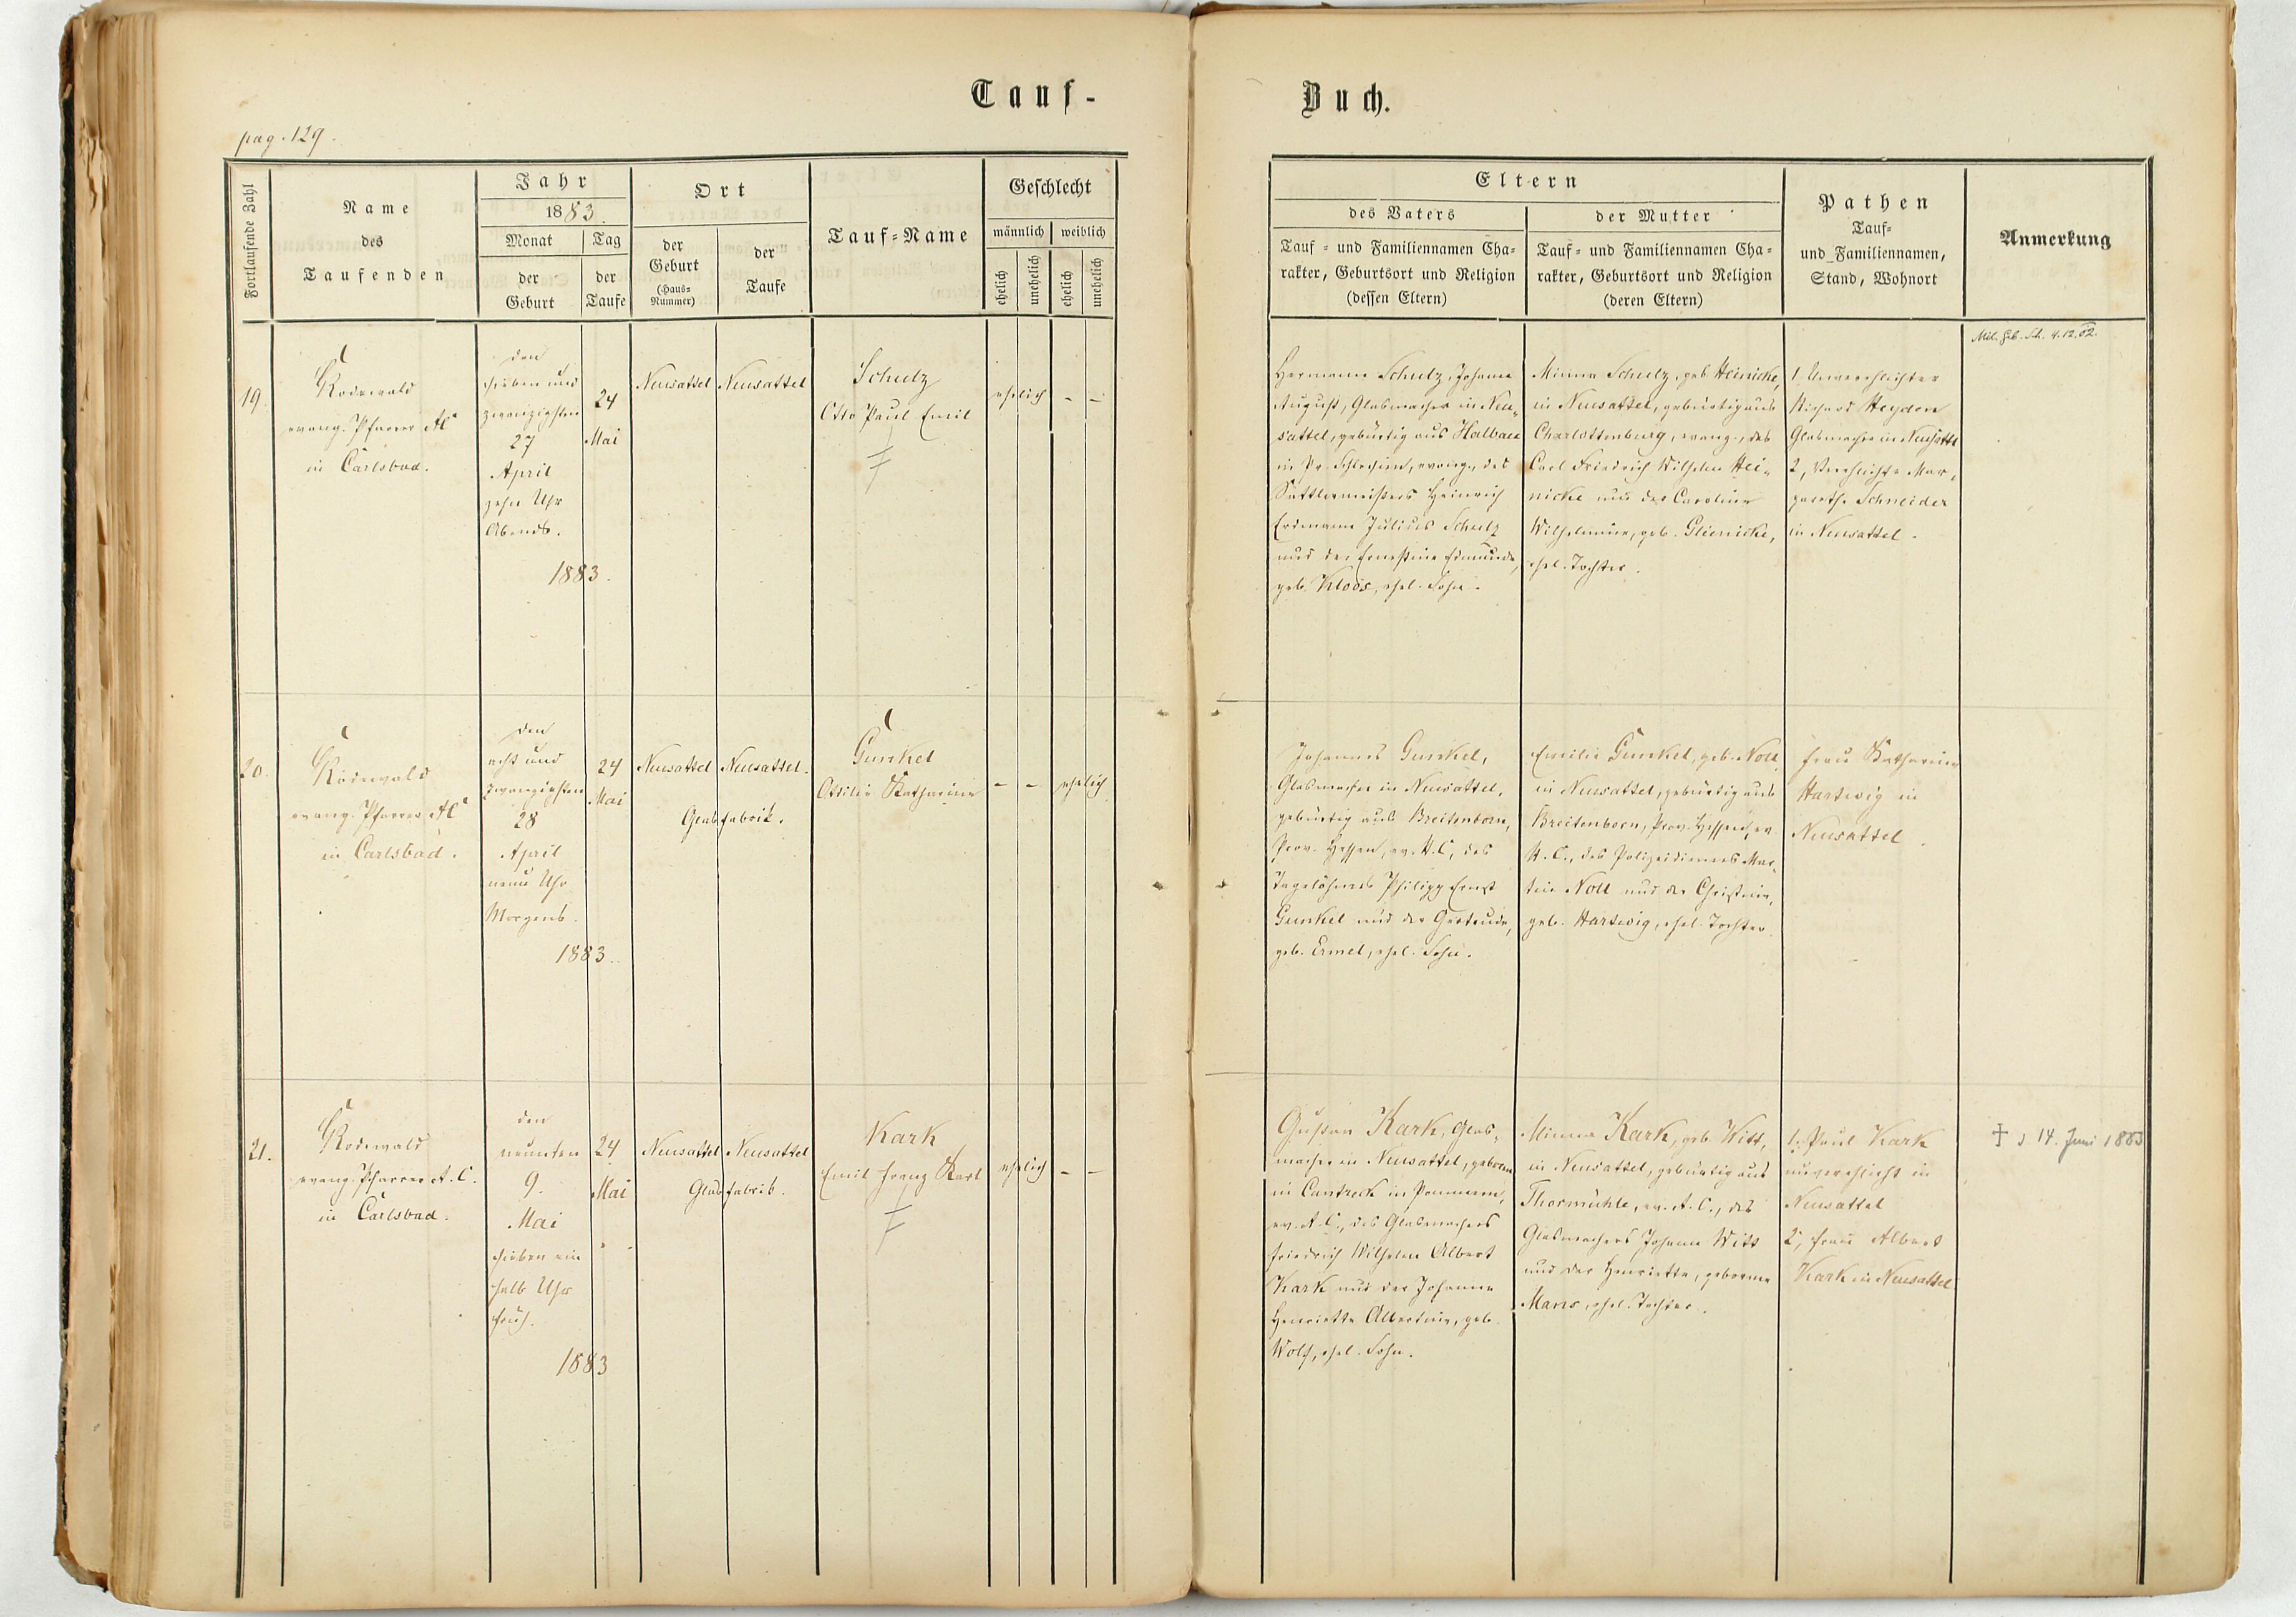 Tauf-
Buch.
pag. 129.
Fortlaufende Zahl
Name
des
Taufenden
Jahr
1883.
Monat
der
Geburt
Tag
der
Taufe
Ort
der
Geburt
(Haus-
Nummer)
der
Taufe
Tauf-Name
Geschlecht
männlich
weiblich
ehelich
unehelich
ehelich
unehelich
Eltern
des Vaters
Tauf- und Familiennamen Cha-
rakter, Geburtsort und Religion
(dessen Eltern)
der Mutter
Tauf- und Familiennamen Cha-
rakter, Geburtsort und Religion
(deren Eltern)
Pathen
Tauf-
und Familiennamen,
Stand, Wohnort
Anmerkung
19.
Rodewald
evang. Pfarrer AC
in Carlsbad.
den
sieben und
zwanzigsten
27
April
zehn Uhr
Abends.
1883.
24
Mai
Neusattel
Neusattel
Schulz
Otto Paul Emil
ehelich
–
–
Hermann Schulz, Johann
August, Glasmacher in Neu-
sattel, gebürtig aus Halbau
in Pr. Schlesien, evang., des
Sattlermeisters Heinrich
Erdmann Julius Schulz
und der Ernestine Edmunde,
geb. Kloos, ehel. Sohn.
Minna Schulz, geb. Heinicke,
in Neusattel, gebürtig aus
Charlottenburg, evang., des
Carl Friedrich Wilhelm Hei-
nicke und der Caroline
Wilhelmine, geb. Glienicke,
ehel. Tochter.
1, Unverehlichter
Richard Heyden
Glasmacher in Neusattl
2, Verehlichte Mar-
gareth. Schneider
in Neusattel.
Mil. Geb. Sch. 4.12.02.
20.
Rodewald
evang. Pfarrer AC
in Carlsbad.
den
acht und
zwanzigsten
28
April
neun Uhr
Morgens.
1883.
24
Mai
Neusattel
Neusattel.
Glasfabrik.
Gunkel
Ottilie Katharine
–
–
ehelich
Johannes Gunkel,
Glasmacher in Neusattel,
gebürtig aus Breitenborn,
Prov. Hessen, ev. H.C., des
Tagelöhners Philipp Ernst
Gunkel und der Gertrude,
geb. Ermel, ehel. Sohn.
Emilie Gunkel, geb. Noll
in Neusattel, gebürtig aus
Breitenborn, Prov. Hessen, ev.
H.C., des Polizeidieners Mar-
tin Noll und der Christine,
geb. Hartwig, ehel. Tochter.
Frau Katharine
Hartwig in
Neusattel.
21.
Rodewald
evang. Pfarrer A.C.
in Carlsbad.
den
neunten
9.
Mai
sieben ein
halb Uhr
früh.
1883
24
Mai
Neusattel
Neusattel
Glasfabrik.
Kark
Emil Franz Karl
ehelich
–
–
Gustav Kark, Glas-
macher in Neusattel, geboren
in Cantreck in Pommern,
ev. A.C., des Glasmachers
Friedrich Wilhelm Albert
Kark und der Johanne
Henriette Albertine, geb.
Wolf, ehel. Sohn.
Minna Kark, geb. Witt,
in Neusattel, gebürtig aus
Thormühle, ev. A.C., des
Glasmachers Johann Witt
und der Henriette, geborene
Mans, ehel. Tochter.
1, Paul Kark
unverehlicht in
Neusattel
2, Frau Albert
Kark in Neusattel
† d 14. Juni 1883